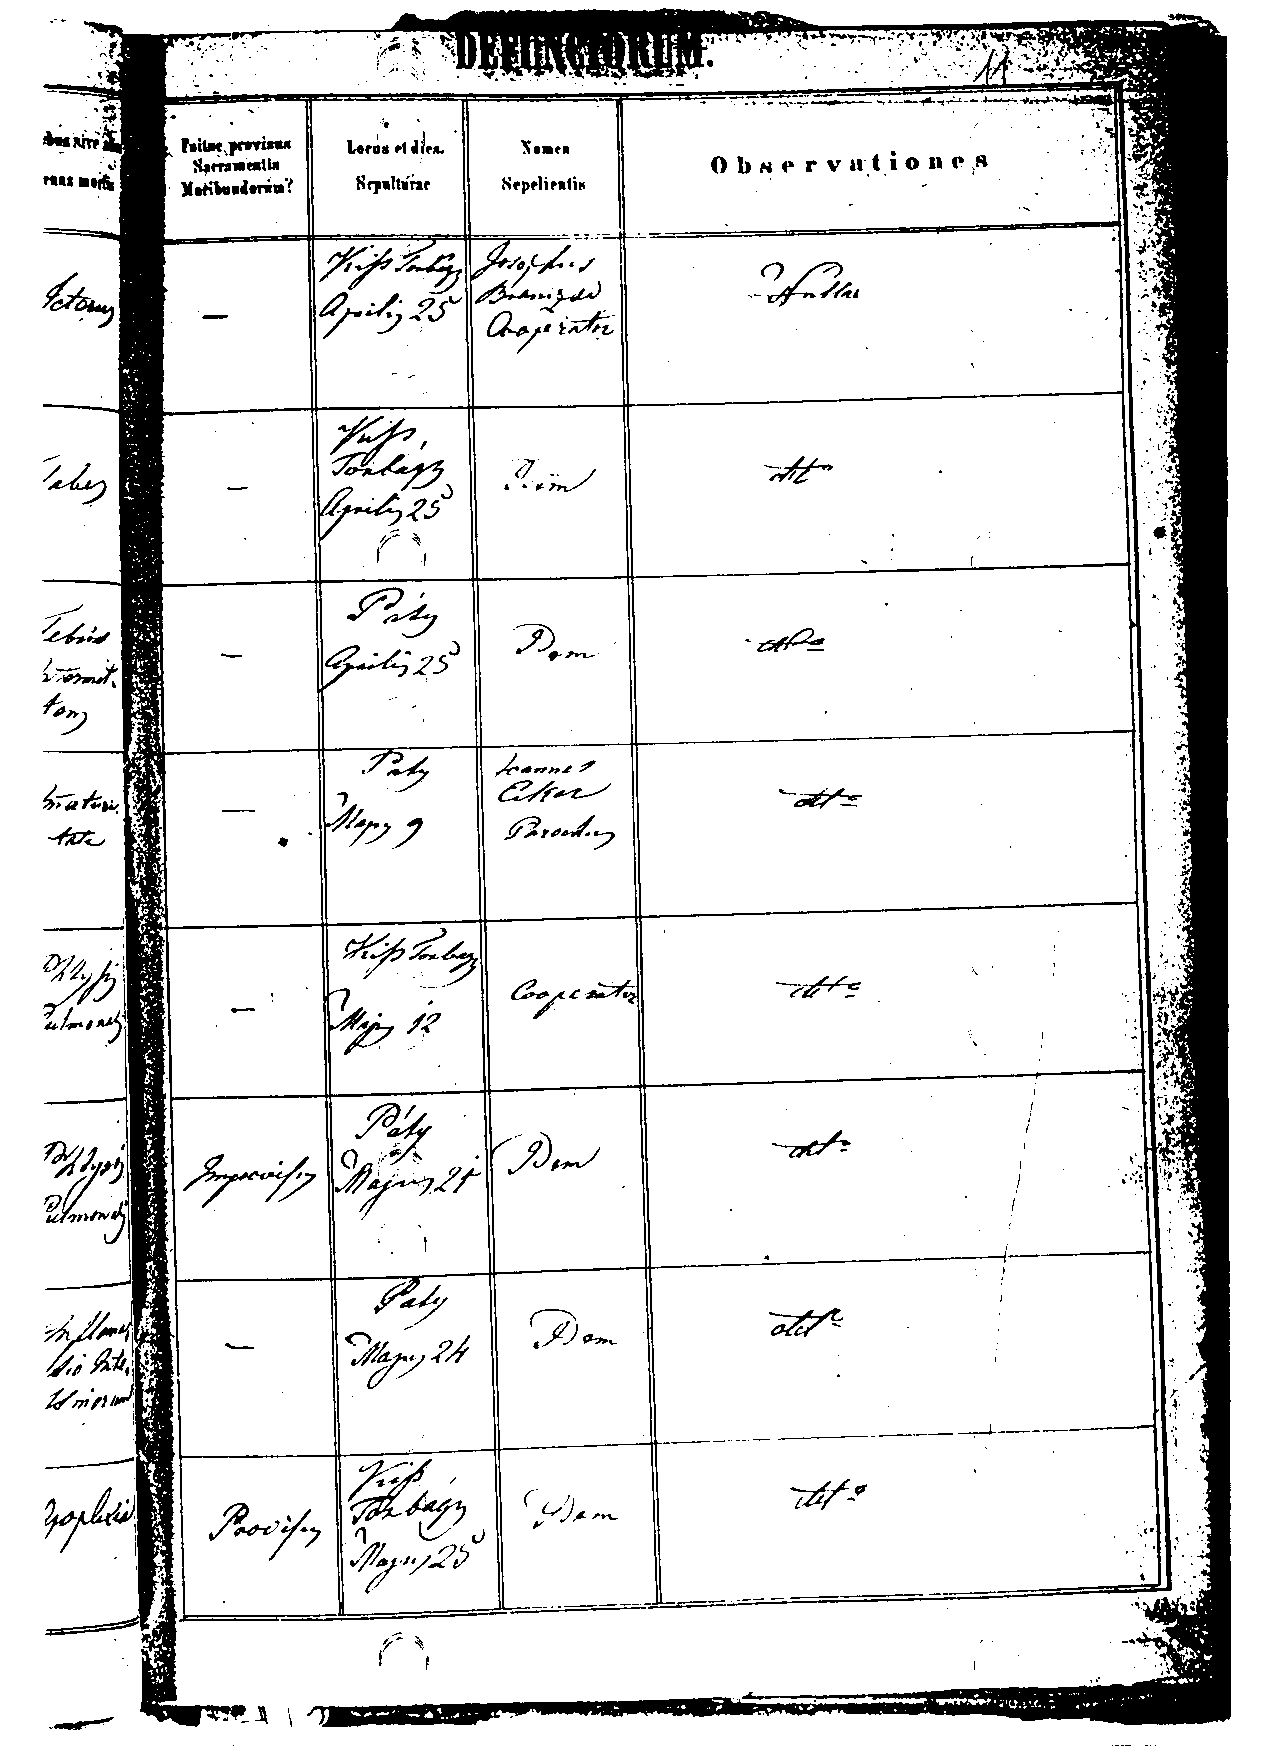 DEFUNCTORUM.
11
Fuitne provisus
Sacramentis
Moribundorum?
Locus et dies.
Sepulturae
Nomen
Sepelientis
Observationes
Icterus
—
Kiss Torbágy
Aprilis 25
Josephus
Cooperator
Nullae
Tabes
—
Kiss
Torbágy
Aprilis 25
Idem
dtto
Febris
intermit.
tens
—
Páty
Aprilis 25
Idem
dtto
—
Páty
Majus 9
Joannes
Parochus
dtto
Phtysis
Pulmonalis
—
Kiss Torbágy
Majus 12
Cooperator
dtto
Phtysis
Pulmonalis
Improvisus
Páty
Majus 21
Idem
dtto
—
Páty
Majus 24
Idem
dtto
Apoplexia
Provisus
Kiss
Torbágy
Majus 25
Idem
dtto